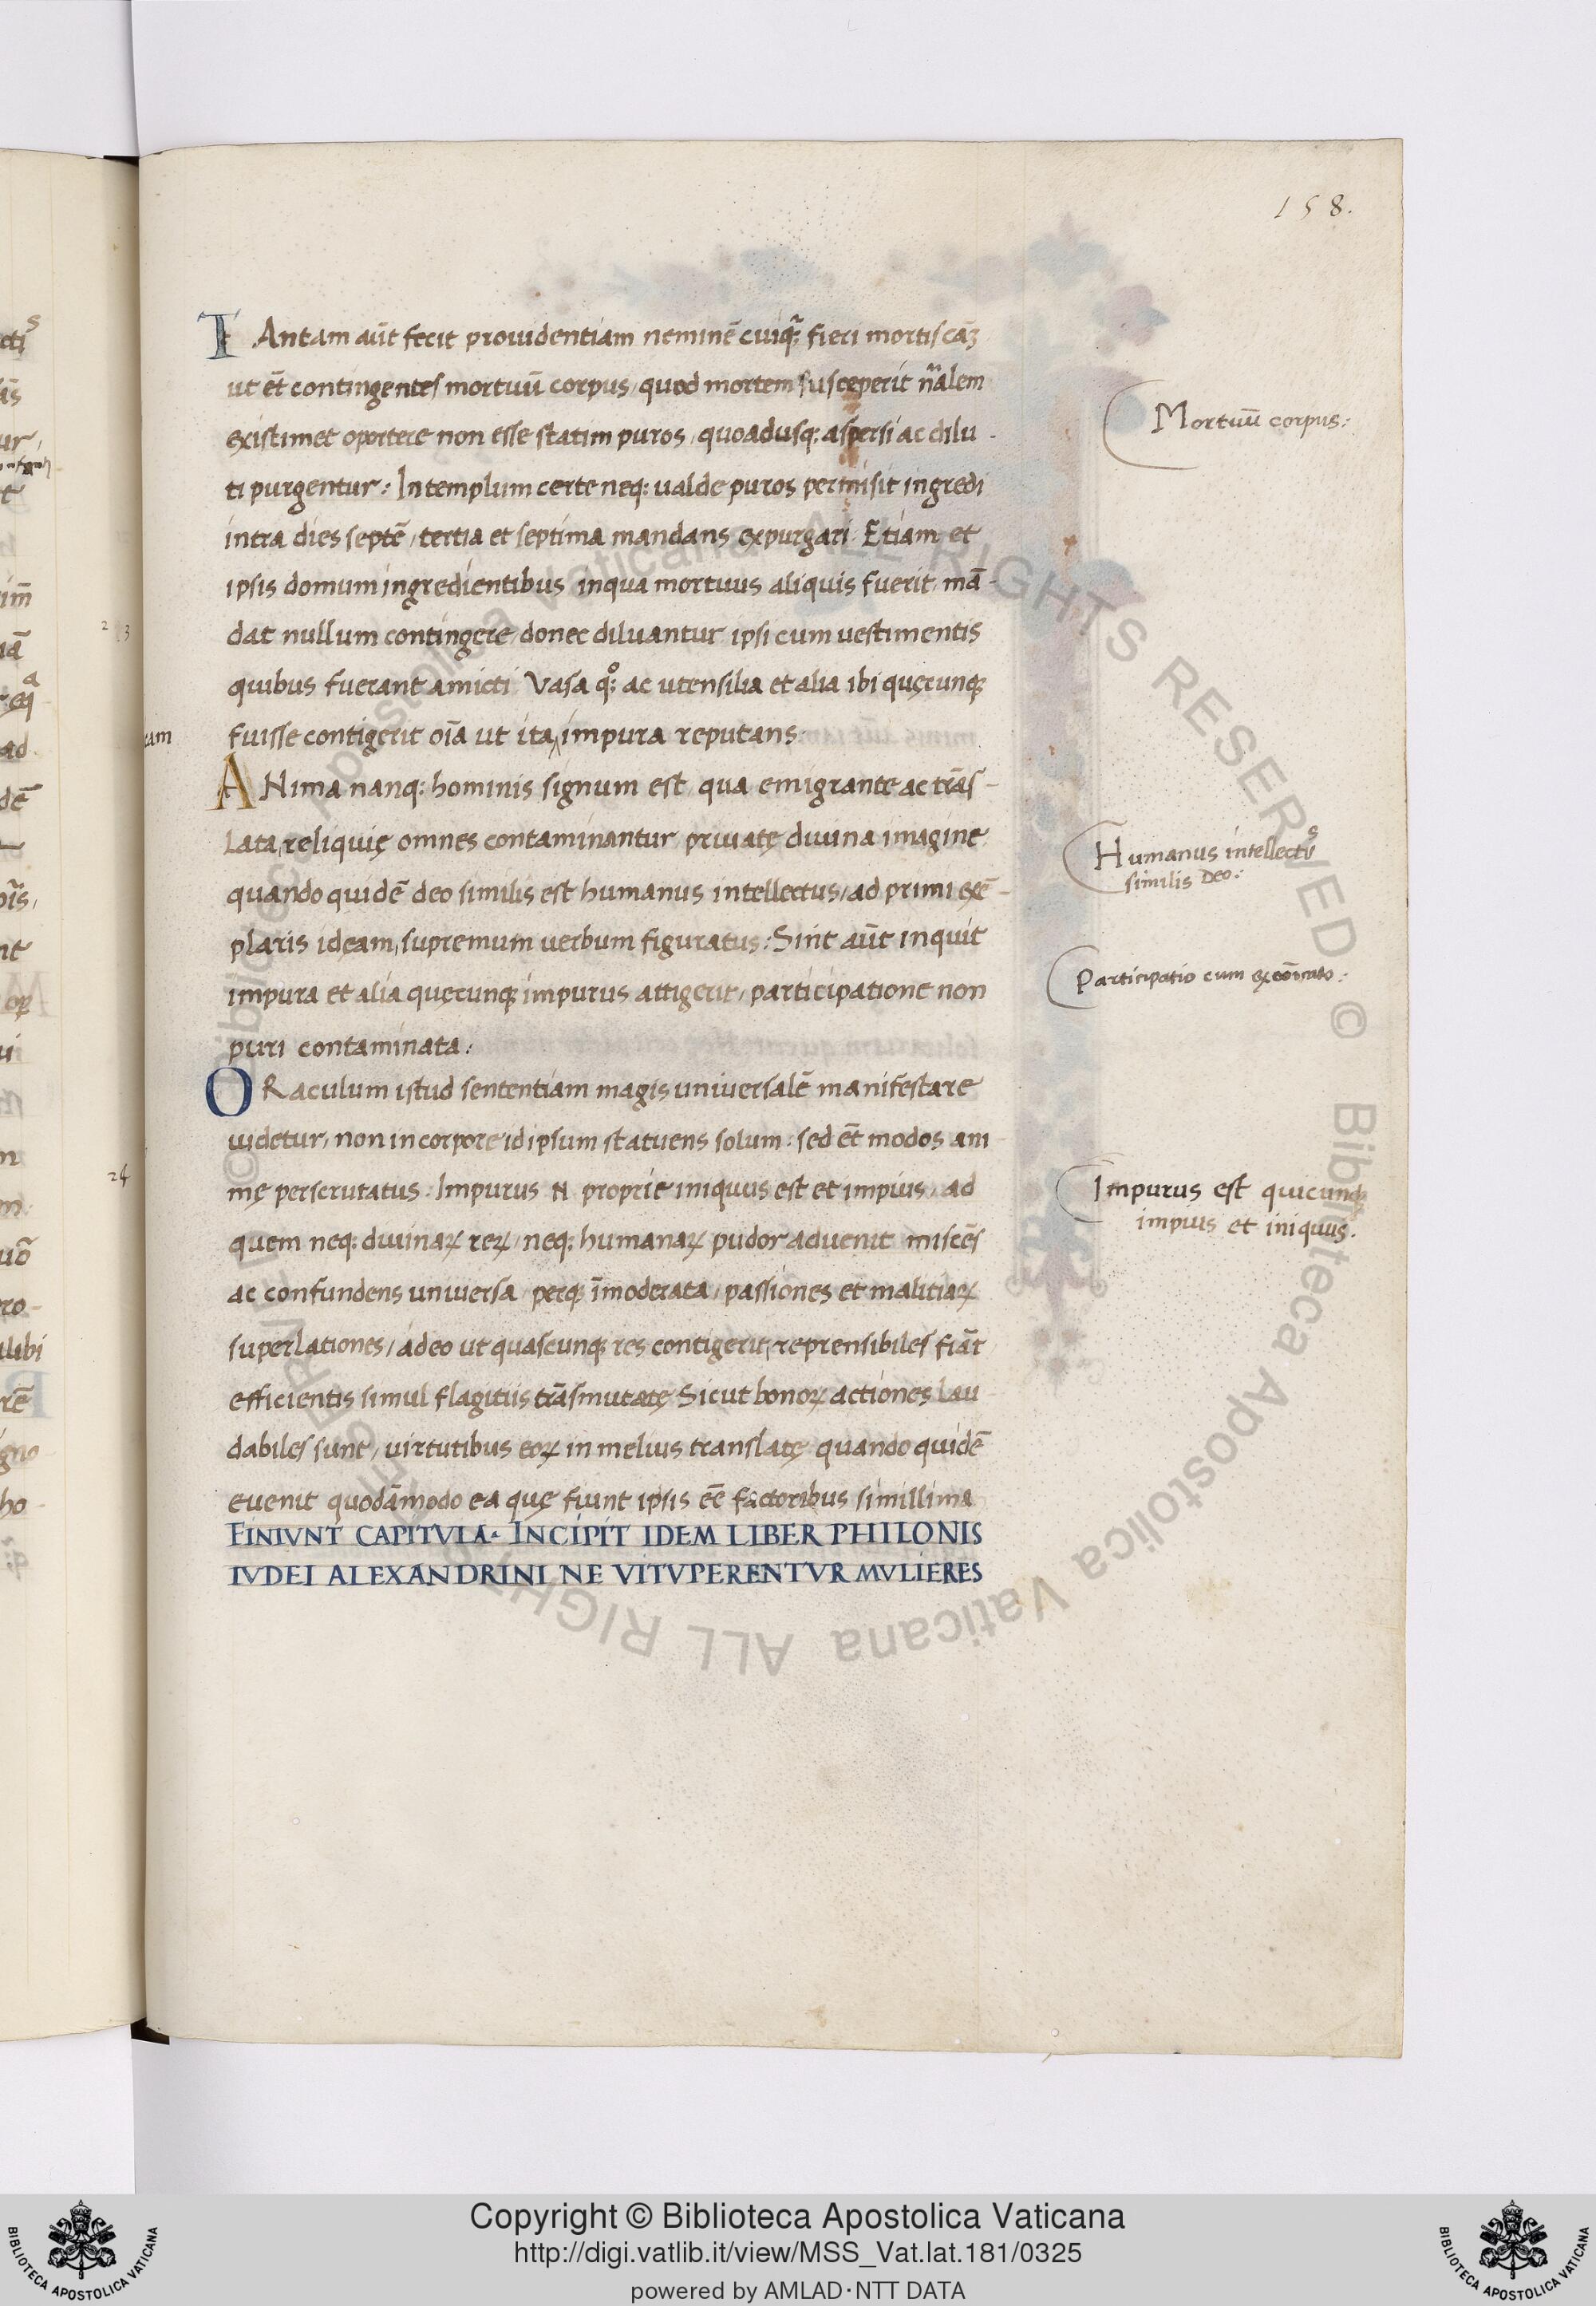 158.
TAntam aūt fecit prouidentiam neminē cuiq̃; fieri mortis cāꝫ
ut ēt contingentes mortuū corpus, quod mortem susceperit nr̃alem
existimet oportere non esse statim puros, quoadusq; aspersi ac dilu
ti purgentur: In templum certe neq; ualde puros permisit ingredi
intra dies septē, tertia et septima mandans expurgari. Etiam et
ipsis domum ingredientibus inqua mortuus aliquis fuerit, mā-
dat nullum contingere, donec diluantur ipsi cum uestimentis
quibus fuerant amicti. Vasa q°; ac utensilia et alia ibi quęcunqꝫ
fuisse contigerit oīa ut ita impura reputans.
ANima nanq; hominis signum est, qua emigrante ac trās-
lata, reliquię omnes contaminantur priuatę diuina imagine
quando quidē deo similis est humanus intellectus, ad primi exē-
plaris ideam, supremum uerbum figuratus: Sint aūt inquit
impura et alia quęcunqꝫ impurus attigerit, participatione non
puri contaminata:
ORaculum istud sententiam magis uniuersalē manifestare
uidetur, non in corpore id ipsum statuens solum: sed ēt modos ani
mę perscrutatus. Impurus N proprie iniquus est et impius, ad
quem neq; diuinaꝝ reꝝ, neq; humanaꝝ pudor aduenit miscēs
ac confundens uniuersa, perqꝫ īmoderata, passiones et malitiaꝝ
superlationes, adeo ut quascunqꝫ res contigerit, reprensibiles fiāt
efficientis simul flagitiis trāsmutatę. Sicut bonoꝝ actiones lau
dabiles sunt, uirtutibus eoꝝ in melius translatę quando quidē
euenit quodāmodo ea quę fiunt ipsis eē factoribus simillima
FINIVNT CAPITVLA. INCIPIT IDEM LIBER PHILONIS
IVDEI ALEXANDRINI NE VITVPERENTVR MVLIERES
Mortuū corpus:
Humanus intellectus
similis Deo:
Participatio cum
Impurus est quicunqꝫ
impius et iniquus.
23
24
© Biblioteca Apostolica Vaticana ALL RIGHTS RESERVED © Biblioteca Apostolica Vaticana ALL RIGHTS RESERVED
Copyright © Biblioteca Apostolica Vaticana
http://digi.vatlib.it/view/MSS_Vat.lat.181/0325
powered by AMLAD·NTT DATA
BIBLIOTECA APOSTOLICA VATICANA
BIBLIOTECA APOSTOLICA VATICANA